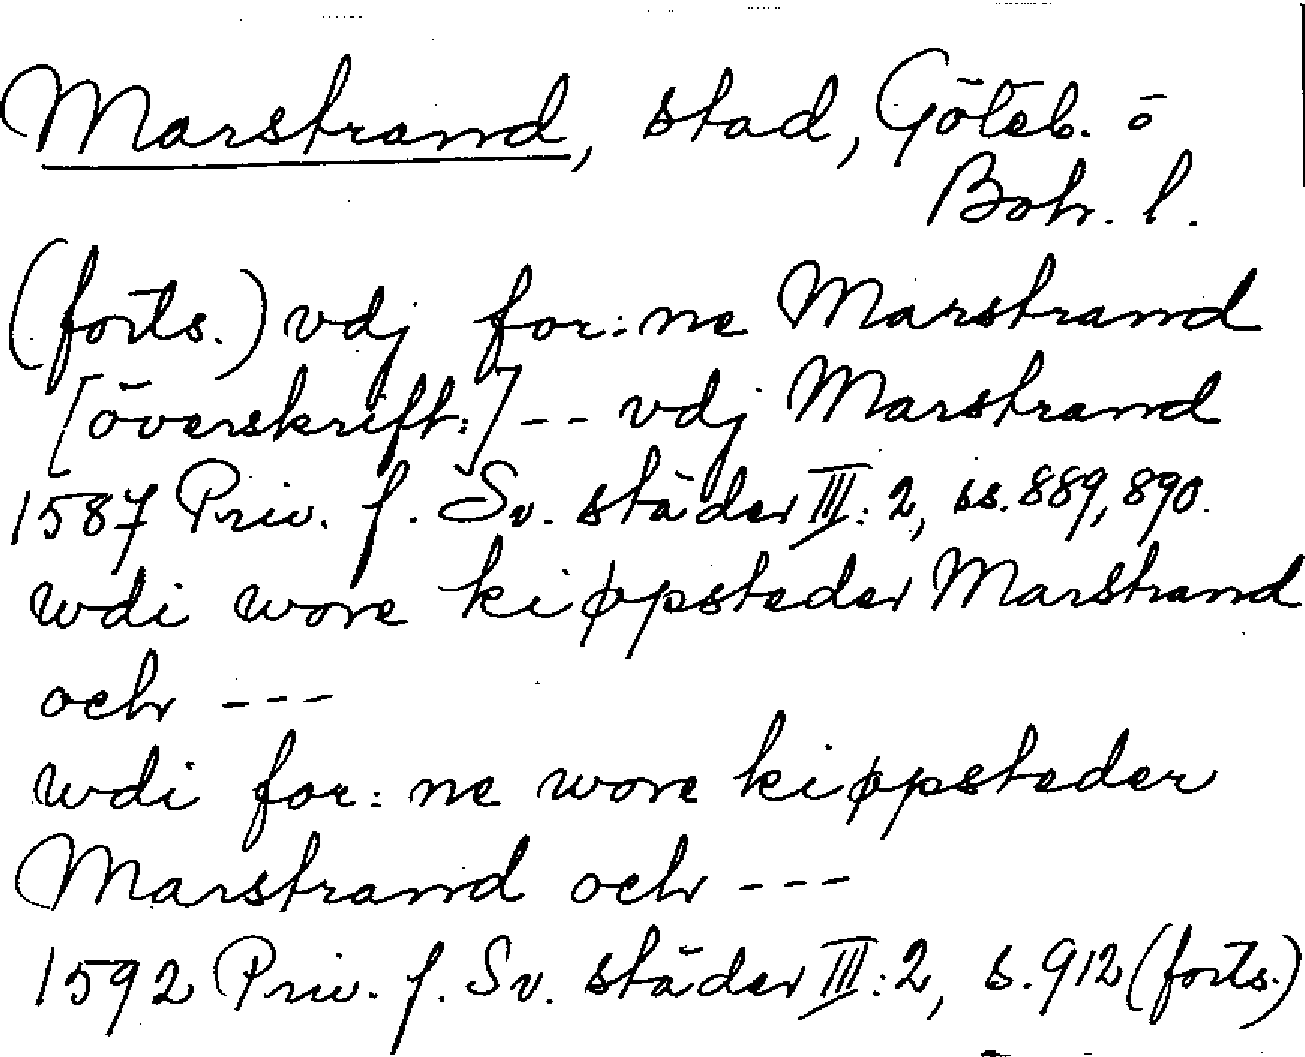 Marstrand, stad, Göteb. o
Boh. l.
(forts.) vdj for:ne Marstrand
[överskrift:] -- vdj Marstrand
1587 Priv. f. Sv. städer III:2, ss. 889, 890.
wdi wore kiøpsteder Marstrand
och ---
wdi for:ne wore kiøpsteder
Marstrand och ---
1592 Priv. f. Sv. städer III:2, s. 912 (forts.)